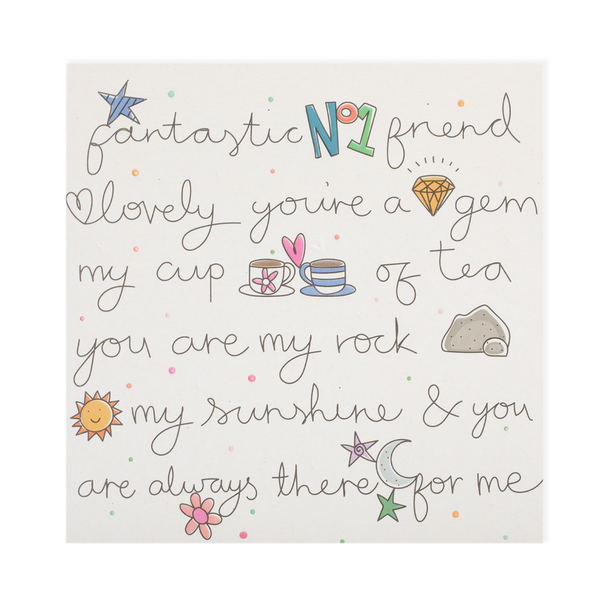 fantastic No1 friend
lovely you're a gem
my cup of tea
you are my rock
my sunshine & you
are always there for me